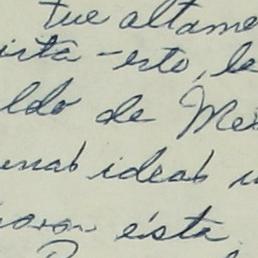 fue altame
ista - esto, le
ldo de Me
enas ideas u
aron ésta